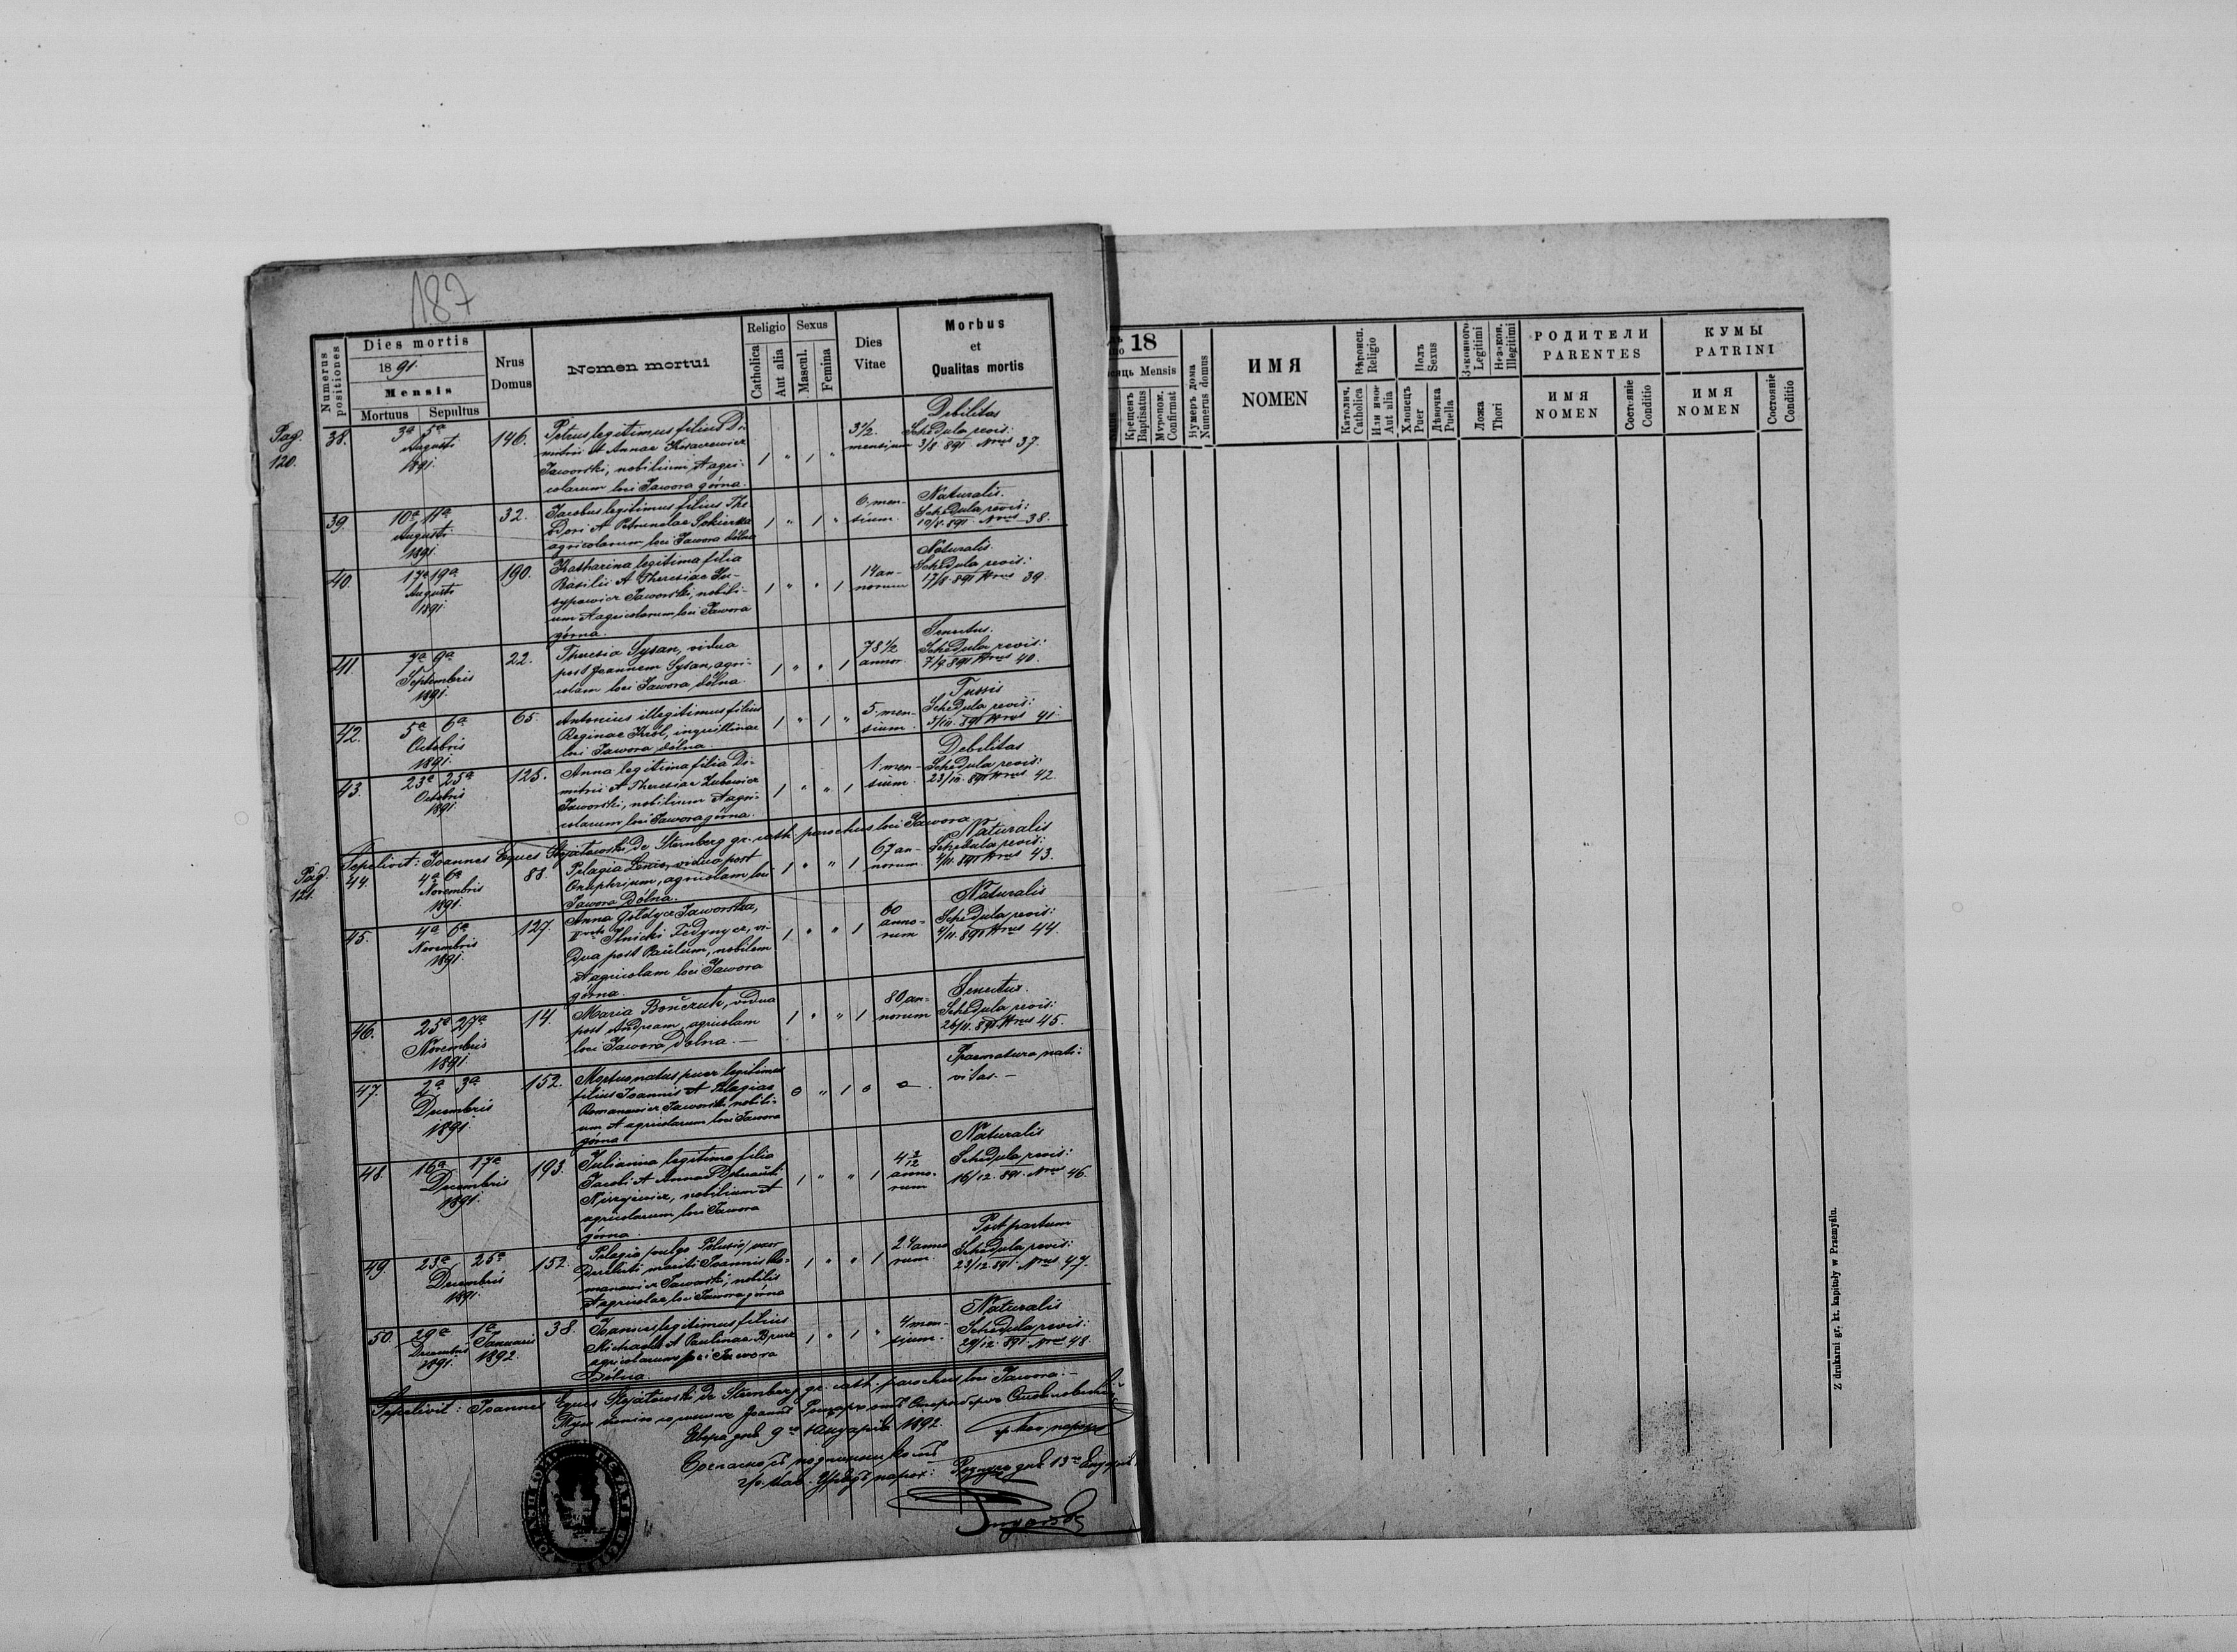 187
Numerus positiones
Dies mortis
1891.
Mensis
Mortuus Sepultus
Nrus Domus
Nomen mortui
Religio
Catholica
Aut alia
Sexus
Mascul.
Femina
Dies Vitae
Morbus
et
Qualitas mortis
Pag. 120.
38. 3ª 5ª Augusti 1891. 146.
Petrus legitimus filius Di-
mitrii et Annae
Jaworski, nobilium et agri-
colarum loci Jawora górna.
1 " 1 "
3½ mensium
Debilitas
Schedula revis:
3/8 891 Nrus 37.
39. 10ª 11ª Augusti 1891. 32.
Jacobus legitimus filius The-
odori et Petrunelae
agricolarum loci Jawora dólna
1 " 1 "
6 men-
sium.
Naturalis.
Schedula revis:
10/8 891. Nrus 38.
40. 17ª 19ª Augusti 1891. 190.
Katharina legitima filia
Basilii et Theresiae Ju-
sypowicz Jaworski, nobili-
um et agricolarum loci Jawora
górna.
1 " " 1
14 an-
norum
Naturalis.
Schedula revis:
17/8 891 Nrus 39.
41. 7ª 9ª Septembris 1891. 22.
Theresia Sysan, vidua
post Joannem Sysan, agri-
colam loci Jawora dólna.
1 " " 1
78½
annor.
Senectus.
Schedula revis:
7/9 891 Nrus 40.
42. 5ª 6ª Octobris 1891. 65.
Antonius illegitimus filius
Reginae Król, inquilinae
loci Jawora dólna.
1 " 1 "
5 men-
sium
Tussis
Schedula revis:
5/10. 891 Nrus 41.
43. 23ª 25ª Octobris 1891. 125.
Anna legitima filia Di-
mitrii et Theresiae
Jaworski, nobilium et agri-
colarum loci Jawora górna.
1 " " 1
1 men-
sium.
Debilitas
Schedula revis:
23/10. 891 Nrus 42.
Sepelivit: Joannes Eques Stojałowski de Sternberg gr. cath. parochus loci Jawora
Pag. 121.
44. 4ª 6ª Novembris 1891. 88.
Pelagia Zenio, vidua post
Onuphrium, agricolam loci
Jawora Dólna.
1 " " 1
67 an-
norum.
Naturalis
Schedula revis:
4/11. 891 Nrus 43.
45. 4ª 6ª Novembris 1891. 127.
Anna Gołdycz Jaworska,
Ilnicki Fedynycz, vi-
dua post Paulum, nobilem
et agricolam loci Jawora
górna.
1 " " 1
60
anno-
rum
Naturalis
Schedula revis:
4/11. 891 Nrus 44.
46. 25ª 27ª Novembris 1891. 14.
Maria Bonczuk, vidua
post Andream, agricolam
loci Jawora Dolna. —
1 " " 1
80 an-
norum
Senectus.
Schedula revis:
26/11. 891 Nrus 45.
47. 2ª 3ª Decembris 1891. 152.
Mortuo natus puer legitimus
filius Joannis et Pelagiae
Romanowicz Jaworski nobili-
um et agricolarum loci Jawora
górna
0 " 1 0
Praematura nati-
vitas. —
48. 16ª 17ª Decembris 1891. 193.
Julianna legitima filia
Jacobi et Annae
nobilium et
agricolarum loci Jawora
górna.
1 " " 1
anno-
rum
Naturalis
Schedula revis:
16/12. 891. Nrus 46.
49. 23ª 25ª Decembris 1891. 152.
Pelagia /vulgo uxor
derelicti mariti Joannis Ro-
manowicz Jaworski, nobilis
et agricolae loci Jawora górna
1 " " 1
24 anno
rum.
Post partum
Schedula revis:
23/12. 891. Nrus 47.
50. 29ª Decembris 1891. 1ª Januarii 1892. 38.
Joannes legitimus filius
Michaelis et Paulinae
agricolarum loci Jawora
Dólna.
1 " 1 "
4 men-
sium.
Naturalis
Schedula revis:
29/12. 891. Nrus 48.
Sepelivit: Joannes Eques Stojałowski de Sternberg gr. cath. parochus loci Jawora. —
Явора дня 9го Януарія 1892.
18
Mensis
Крещенъ Baptisatus
Мѵропом. Confirmat
Нумеръ дома
Numerus domus
ИМЯ
NOMEN
Вѣроисп.
Religio
Католич.
Catholica
Или иное
Aut alia
Полъ
Sexus
Хлопецъ
Puer
Дѣвочка
Puella
Законного
Legitimi
Незакон.
Illegitimi
Ложа
Thori
РОДИТЕЛИ
PARENTES
ИМЯ
NOMEN
Состояніе
Conditio
КУМЫ
PATRINI
ИМЯ
NOMEN
Состояніе
Conditio
Z drukarni gr. kt. kapituły w Przemyślu.